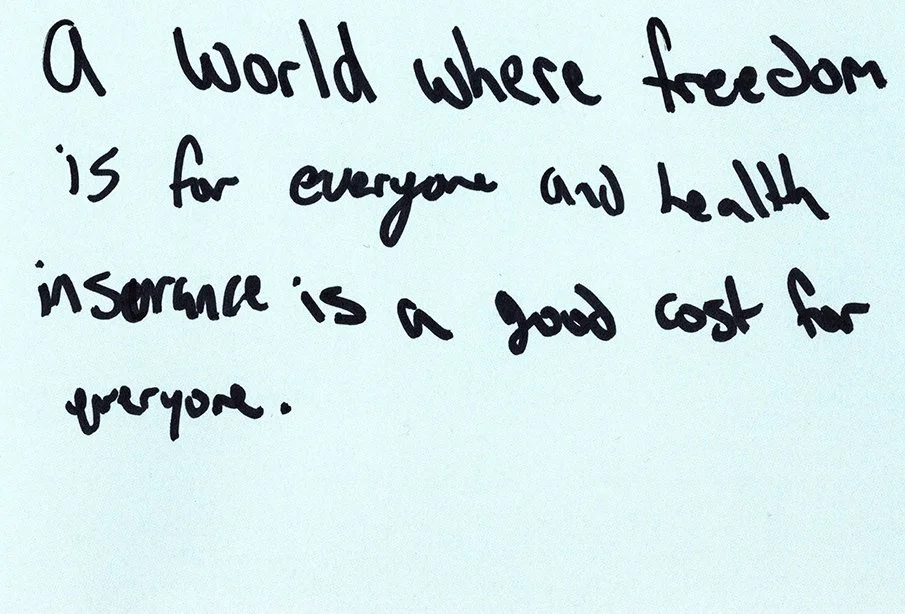 A world where freedom
is for everyone and health
insurance is a good cost for
everyone.